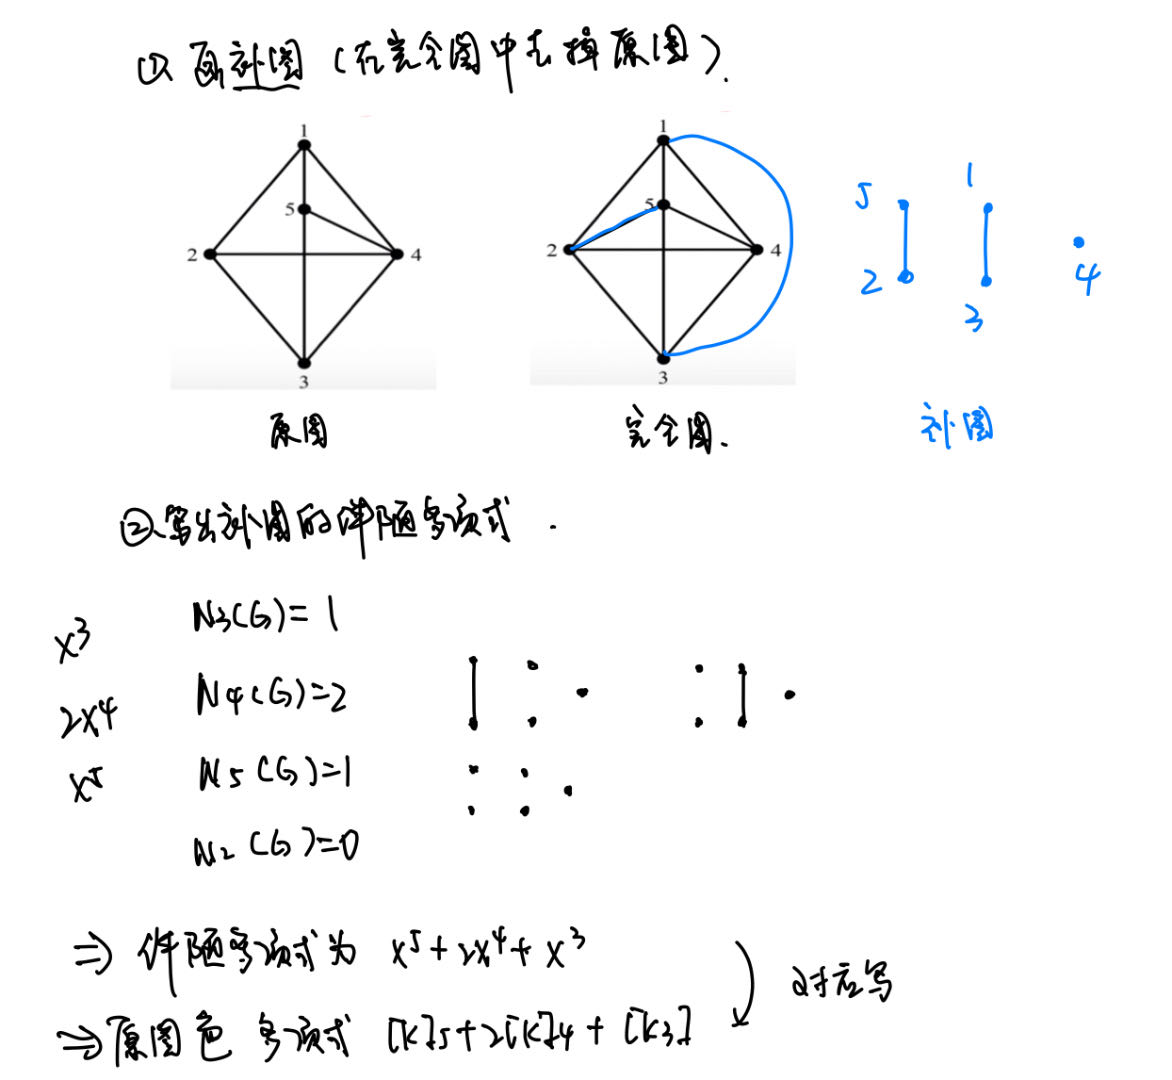 ① 画补图（在完全图中去掉原图）.
1
5
2
4
3
1
5
2
4
3
5
2
1
3
4
原图
完全图.
补图
②、写出补图的伴随多项式.
x³ N₃(G)=1
2x⁴ N₄(G)=2
x⁵ N₅(G)=1
N₂(G)=0
⇒ 伴随多项式为 x⁵+2x⁴+x³
对应写
⇒ 原图色多项式 [k]₅+2[k]₄+[k₃]